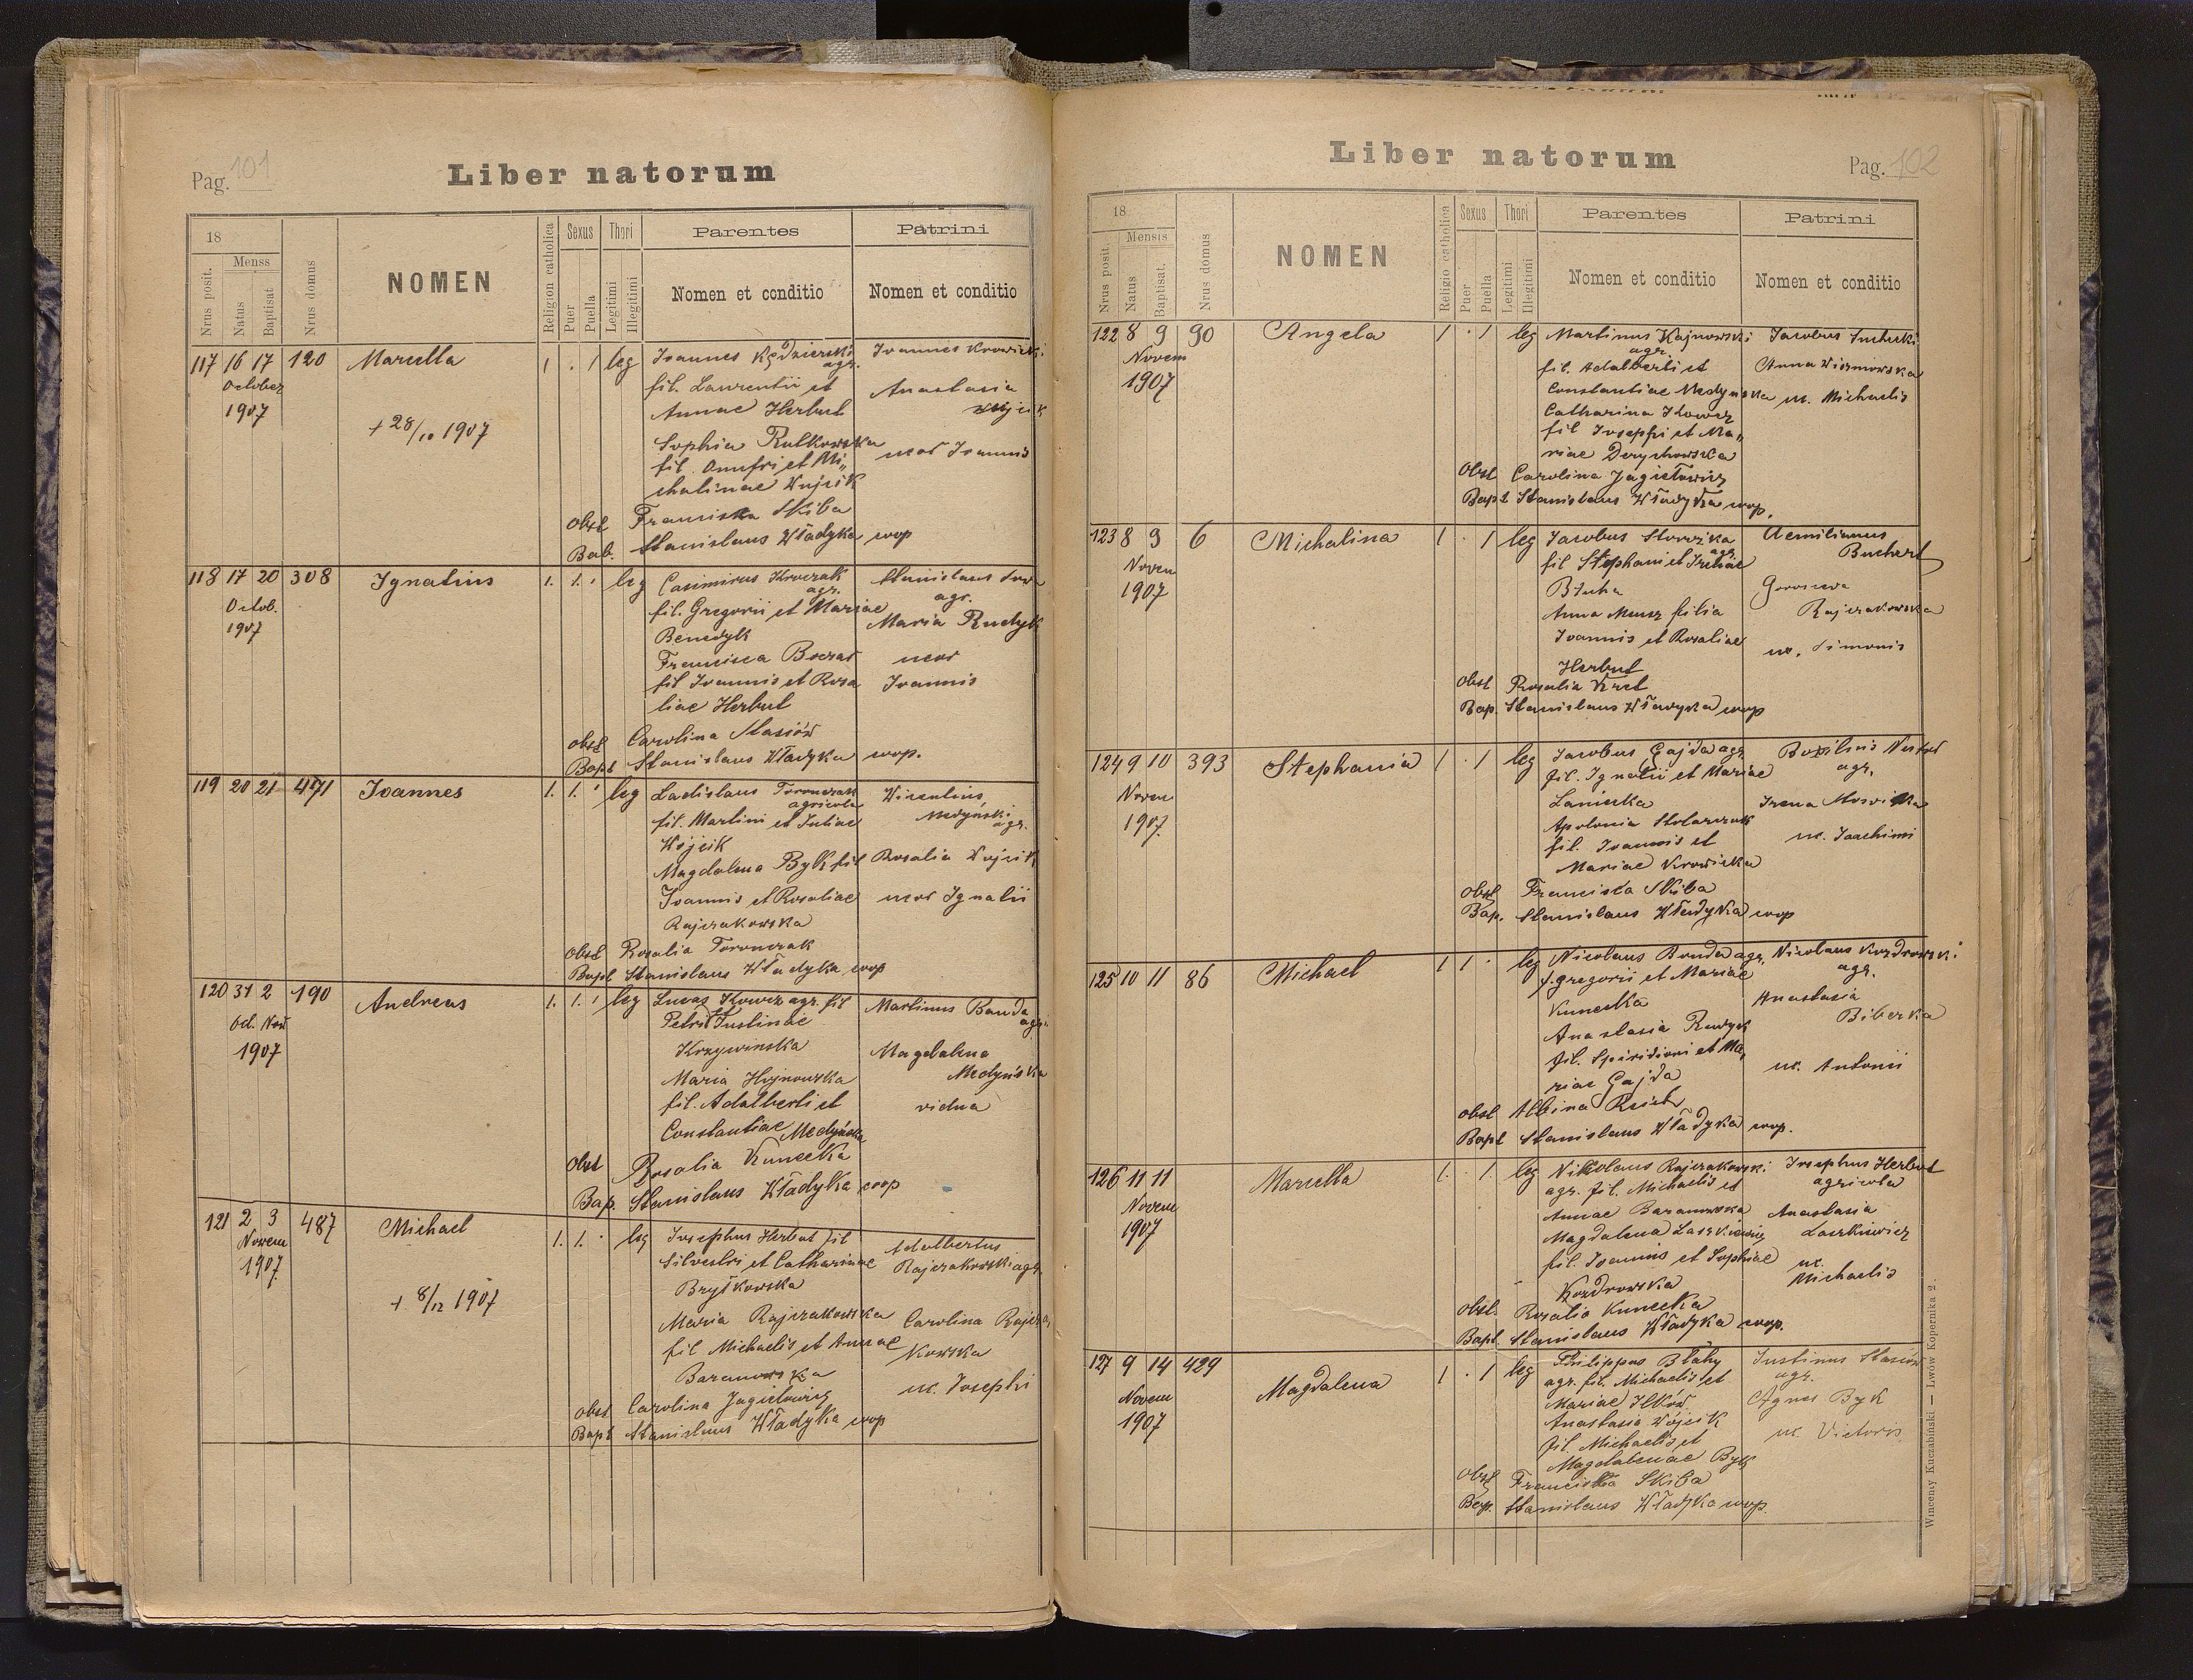 Pag. 101
Liber natorum
18
Nrus posit.
Menss
Natus
Baptisat
Nrus domus
NOMEN
Religion catholica
Sexus
Puer
Puella
Thori
Legitimi
Illegitimi
Parentes
Nomen et conditio
Patrini
Nomen et conditio
117 16 17 120 Marcella 1 . 1 leg Joannes Kędzierski Joannes Krowicki
October agr.
1907 fil. Laurentii et Anastasia
Annae Herbut Wujcik
+ 28/10 1907
Sophia Rutkowska uxor Joannis
fil. Onufri et Mi„
chalinae Wujcik
Obst Franciska Skiba
Bab. Stanislaus Władyka coop
118 17 20 308 Ignatius 1. 1. . leg Casimirus Kroczak Stanislaus
Octob. agr. agr.
1907 fil. Gregorii et Mariae Maria Rudyk
Benedyk
Francisca Boczar uxor
fil Joannis et Rosa Joannis
liae Herbut
obst Carolina Stasiów
Bapt Stanislaus Władyka coop.
119 20 21 471 Joannes 1. 1. . leg Ladislaus Toronczak Vincentius
agricola Medyński
fil. Martini et Juliae agr.
Wójcik
Magdalena Byk fil Rosalia Wojcik
Joannis et Rosaliae uxor Ignatii
Rajczakowska
Obst Rosalia Toronczak
Bapt Stanislaus Władyka coop
120 31 2 190 Andreas 1. 1. . leg Lucas Ilowcz agr. fil Martinus Banda
Oct. Nov Petri et Justinae agr.
1907 Krzywinska Magdalena
Maria Hojnowska Medyńska
fil. Adalberti et vidua
Constantiae Medyńska
Obst Rosalia Kunecka
Bap. Stanislaus Władyka coop
121 2 3 487 Michael 1. 1. . leg Josephus Herbut fil Adalbertus
Novem Silvestri et Catharinae Rajczakowski agr.
1907 Brytkowska
+ 8/12 1907
Maria Rajczakowska Carolina Rajcza„
fil Michaelis et Annae kowska
Baranowska ux. Josephi
obst Carolina Jagielowicz
Bapt Stanislaus Władyka coop
Liber natorum
Pag. 102
18
Nrus posit.
Mensis
Natus
Baptisat.
Nrus domus
NOMEN
Religio catholica
Sexus
Puer
Puella
Thori
Legitimi
Illegitimi
Parentes
Nomen et conditio
Patrini
Nomen et conditio
122 8 9 90 Angela 1 . 1 leg Martinus Kajnowski Jacobus Suchecki
Novem agr.
1907 fil. Adalberti et Anna Wiszniowska
Constantiae Medynska ux. Michaelis
Catharina Ilowcz
fil Josephi et Ma„
riae Derychowska
Obst Carolina Jagiełowicz
Bapt Stanislaus Władyka coop.
123 8 9 6 Michalina 1 . 1 leg Jacobus Storozka Aemilianus
Novem agr. Buchert
1907 fil Stephani et Juliae
Blucha Rajczakowska
Anna Musz filia
Joannis et Rosaliae ux. Simonis
Herbut
Obst Rosalia Kret
Bap. Stanislaus Władyka coop
124 9 10 393 Stephania 1 . 1 leg Jacobus Gajda agr. Basilius
Novem fil. Ignatii et Mariae agr.
1907 Laniecka Irena
Apolonia Stolarczuk ux. Joachimi
fil. Joannis et
Mariae Krowicka
Obst Francisca Skiba
Bap. Stanislaus Władyka coop
125 10 11 86 Michael 1 1 . leg Nicolaus Banda agr. Nicolaus Kozdrowski
f. gregorii et Mariae agr.
Kunecka Anastasia
Anastasia Rudyk Biberka
fil. Spiridioni et Ma„ ux. Antonii
riae Gajda
obst Albina Reich
Bapt Stanislaus Władyka coop.
126 11 11 Marcella 1. . 1. leg Nikolaus Rajczakowski Josephus Herbut
Novem agr. fil. Michaelis et agricola
1907 Annae Baranowska Anastasia
Magdalena Laszkiewicz Laszkiewicz
fil. Joannis et Sophiae ux.
Kozdrowska Michaelis
obst. Rosalia Kunecka
Bapt. Stanislaus Władyka coop.
127 9 14 429 Magdalena 1 . 1 leg Philippus Błahy Justinus Stasiów
Novem agr. fil. Michaelis et agr.
1907 Mariae Ilków Agnes Byk
Anastasia Wójcik ux. Victoris
fil. Michaelis et
Magdalenae Byk
Obst Franciska Skiba
Bap. Stanislaus Władyka coop.
Wincenty Kuczabiński — Lwów Kopernika 2.